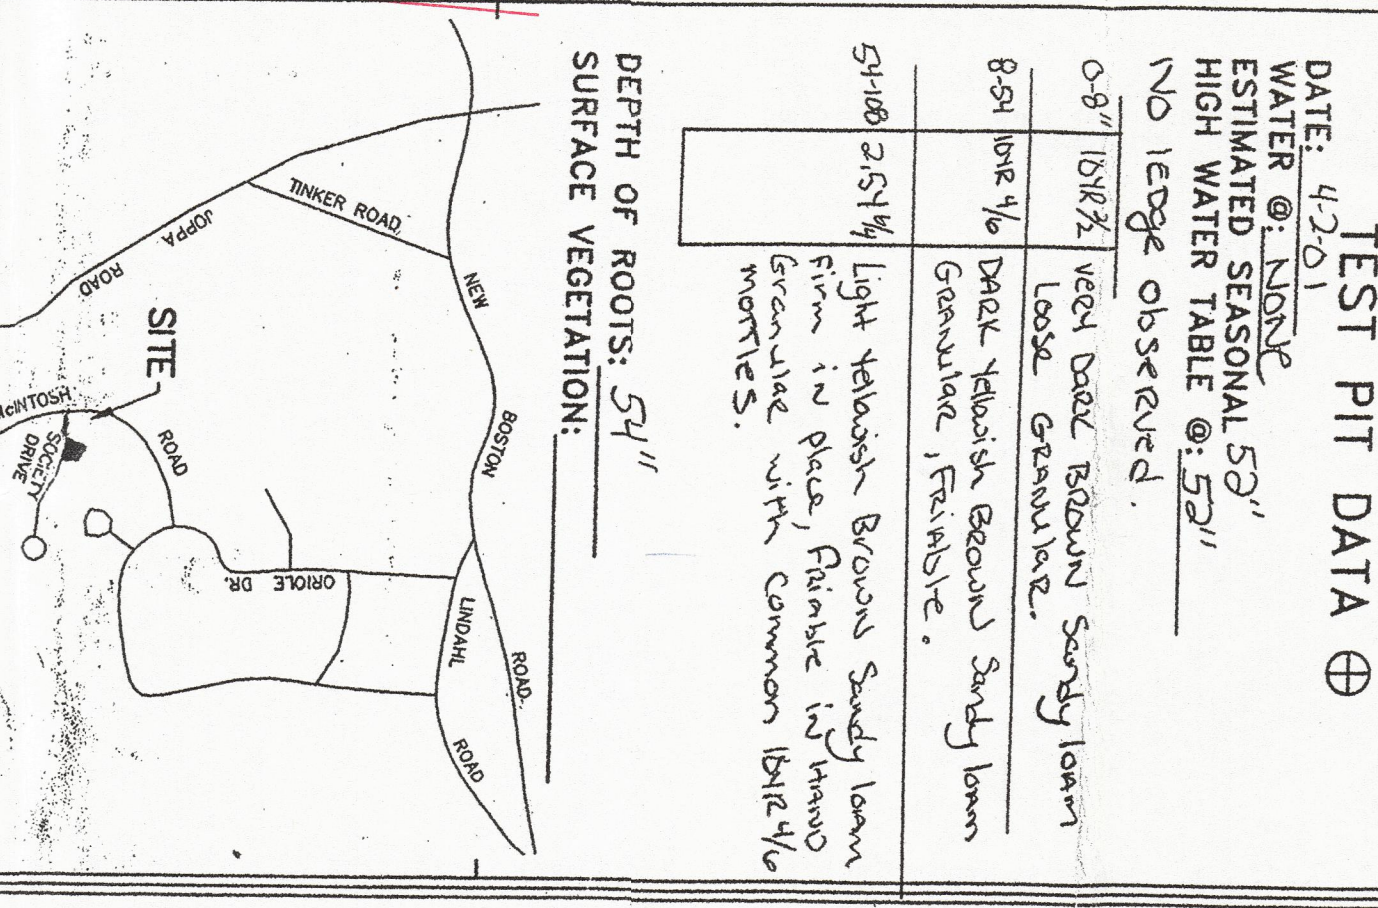 TEST PIT DATA
DATE: 4-2-01
WATER @: NONE
ESTIMATED SEASONAL 52"
HIGH WATER TABLE @: 52"
NO ledge observed.
0-8" 10YR 3/2 very DARK BROWN Sandy loam
Loose GRANULAR.
8-54 10YR 4/6 DARK Yellowish BROWN Sandy loam
GRANULAR, FRIABLE.
54-108 2.5Y 6/4 Light Yellowish Brown Sandy loam
Firm in place, FRIABLE IN HAND
Granular with Common 10YR 4/6
mottles.
DEPTH OF ROOTS: 54"
SURFACE VEGETATION:
NEW BOSTON ROAD
TINKER ROAD
JOPPA ROAD
LINDAHL ROAD
ORIOLE DR.
SITE
McINTOSH ROAD
SOCIETY
DRIVE